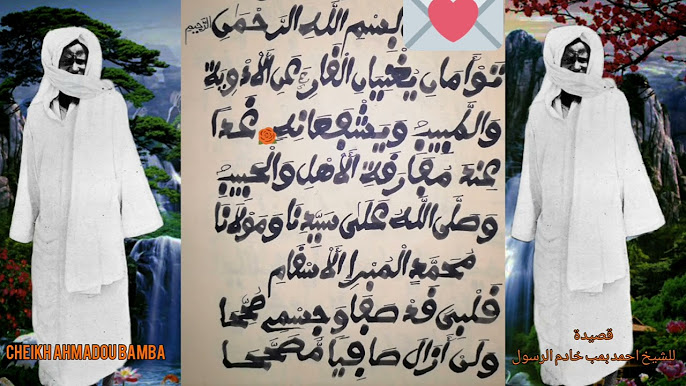 بسم الله الرحمن الرحيم
توأمان يغنيان القارئ عن الأدوية
والطبيب ويشفعانه غدا
عند مفارقة الأهل والحبيب
وصلى الله على سيدنا ومولانا
محمد المبرئ الأسقام
قلبي قد صفا وجسمي صححا
ولن أزال صافيا مصححا
CHEIKH AHMADOU BAMBA
قصيدة
للشيخ احمد بمب خادم الرسول